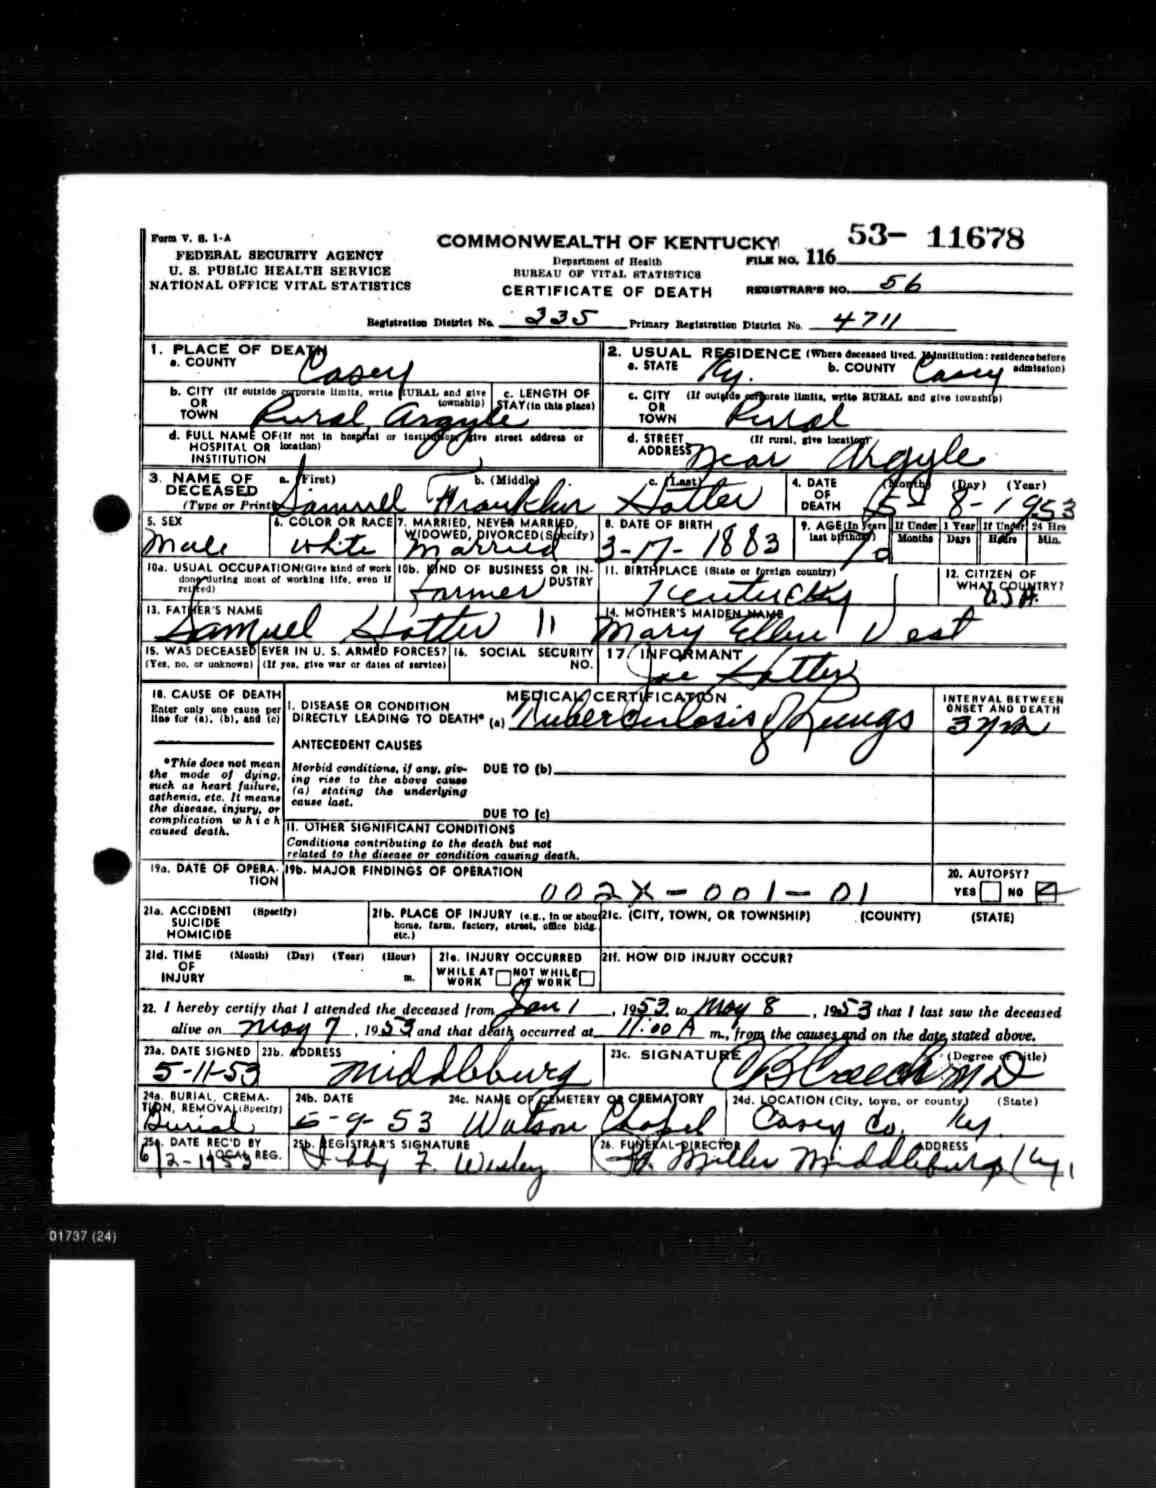 Form V. S. 1-A
FEDERAL SECURITY AGENCY
U. S. PUBLIC HEALTH SERVICE
NATIONAL OFFICE VITAL STATISTICS
COMMONWEALTH OF KENTUCKY
Department of Health
BUREAU OF VITAL STATISTICS
CERTIFICATE OF DEATH
FILE NO. 116 53- 11678
REGISTRAR'S NO. 56
Registration District No. 235 Primary Registration District No. 4711
1. PLACE OF DEATH
a. COUNTY Casey
b. CITY (If outside corporate limits, write RURAL and give township) OR TOWN Rural Argyle
c. LENGTH OF STAY (in this place)
d. FULL NAME OF (If not in hospital or institution, give street address or location) HOSPITAL OR INSTITUTION
2. USUAL RESIDENCE (Where deceased lived. If institution: residence before admission)
a. STATE Ky. b. COUNTY Casey
c. CITY (If outside corporate limits, write RURAL and give township) OR TOWN Rural
d. STREET ADDRESS (If rural, give location) Near Argyle
3. NAME OF DECEASED (Type or Print) a. (First) b. (Middle) c. (Last) Samuel Franklin Hatter
4. DATE OF DEATH (Month) (Day) (Year) 5- 8-1953
5. SEX Male
6. COLOR OR RACE White
7. MARRIED, NEVER MARRIED, WIDOWED, DIVORCED (Specify) Married
8. DATE OF BIRTH 3-17-1883
9. AGE (In Years last birthday) 70 If Under 1 Year Months Days If Under 24 Hrs Hours Min.
10a. USUAL OCCUPATION (Give kind of work done during most of working life, even if retired)
10b. KIND OF BUSINESS OR INDUSTRY Farmer
11. BIRTHPLACE (State or foreign country) Kentucky
12. CITIZEN OF WHAT COUNTRY? USA.
13. FATHER'S NAME Samuel Hatter
14. MOTHER'S MAIDEN NAME Mary Ellen Vest
15. WAS DECEASED EVER IN U. S. ARMED FORCES? (Yes, no, or unknown) (If yes, give war or dates of service)
16. SOCIAL SECURITY NO.
17. INFORMANT Joe Hatter
18. CAUSE OF DEATH
Enter only one cause per line for (a), (b), and (c)
*This does not mean the mode of dying, such as heart failure, asthenia, etc. It means the disease, injury, or complication which caused death.
MEDICAL CERTIFICATION
I. DISEASE OR CONDITION DIRECTLY LEADING TO DEATH* (a) Tuberculosis of Lungs
INTERVAL BETWEEN ONSET AND DEATH 3 yrs
ANTECEDENT CAUSES
Morbid conditions, if any, giving rise to the above cause (a) stating the underlying cause last.
DUE TO (b)
DUE TO (c)
II. OTHER SIGNIFICANT CONDITIONS
Conditions contributing to the death but not related to the disease or condition causing death.
19a. DATE OF OPERATION
19b. MAJOR FINDINGS OF OPERATION
002X-001-01
20. AUTOPSY?
YES NO
21a. ACCIDENT (Specify) SUICIDE HOMICIDE
21b. PLACE OF INJURY (e.g., in or about home, farm, factory, street, office bldg. etc.)
21c. (CITY, TOWN, OR TOWNSHIP) (COUNTY) (STATE)
21d. TIME OF INJURY (Month) (Day) (Year) (Hour) m.
21e. INJURY OCCURRED WHILE AT WORK NOT WHILE AT WORK
21f. HOW DID INJURY OCCUR?
22. I hereby certify that I attended the deceased from Jan 1, 1953, to May 8, 1953 that I last saw the deceased
alive on May 7, 1953 and that death occurred at 11:00 A m., from the causes and on the date stated above.
23a. DATE SIGNED 5-11-53
23b. ADDRESS Middleburg
23c. SIGNATURE (Degree or title) Creech MD
24a. BURIAL, CREMATION, REMOVAL (Specify) Burial
24b. DATE 5-9-53
24c. NAME OF CEMETERY OR CREMATORY Watson Chapel
24d. LOCATION (City, town, or county) (State) Casey Co. Ky.
25a. DATE REC'D BY LOCAL REG. 6/2-1953
25b. REGISTRAR'S SIGNATURE F. Wesley
26. FUNERAL DIRECTOR ADDRESS Miller Middleburg Ky.
01737 (24)